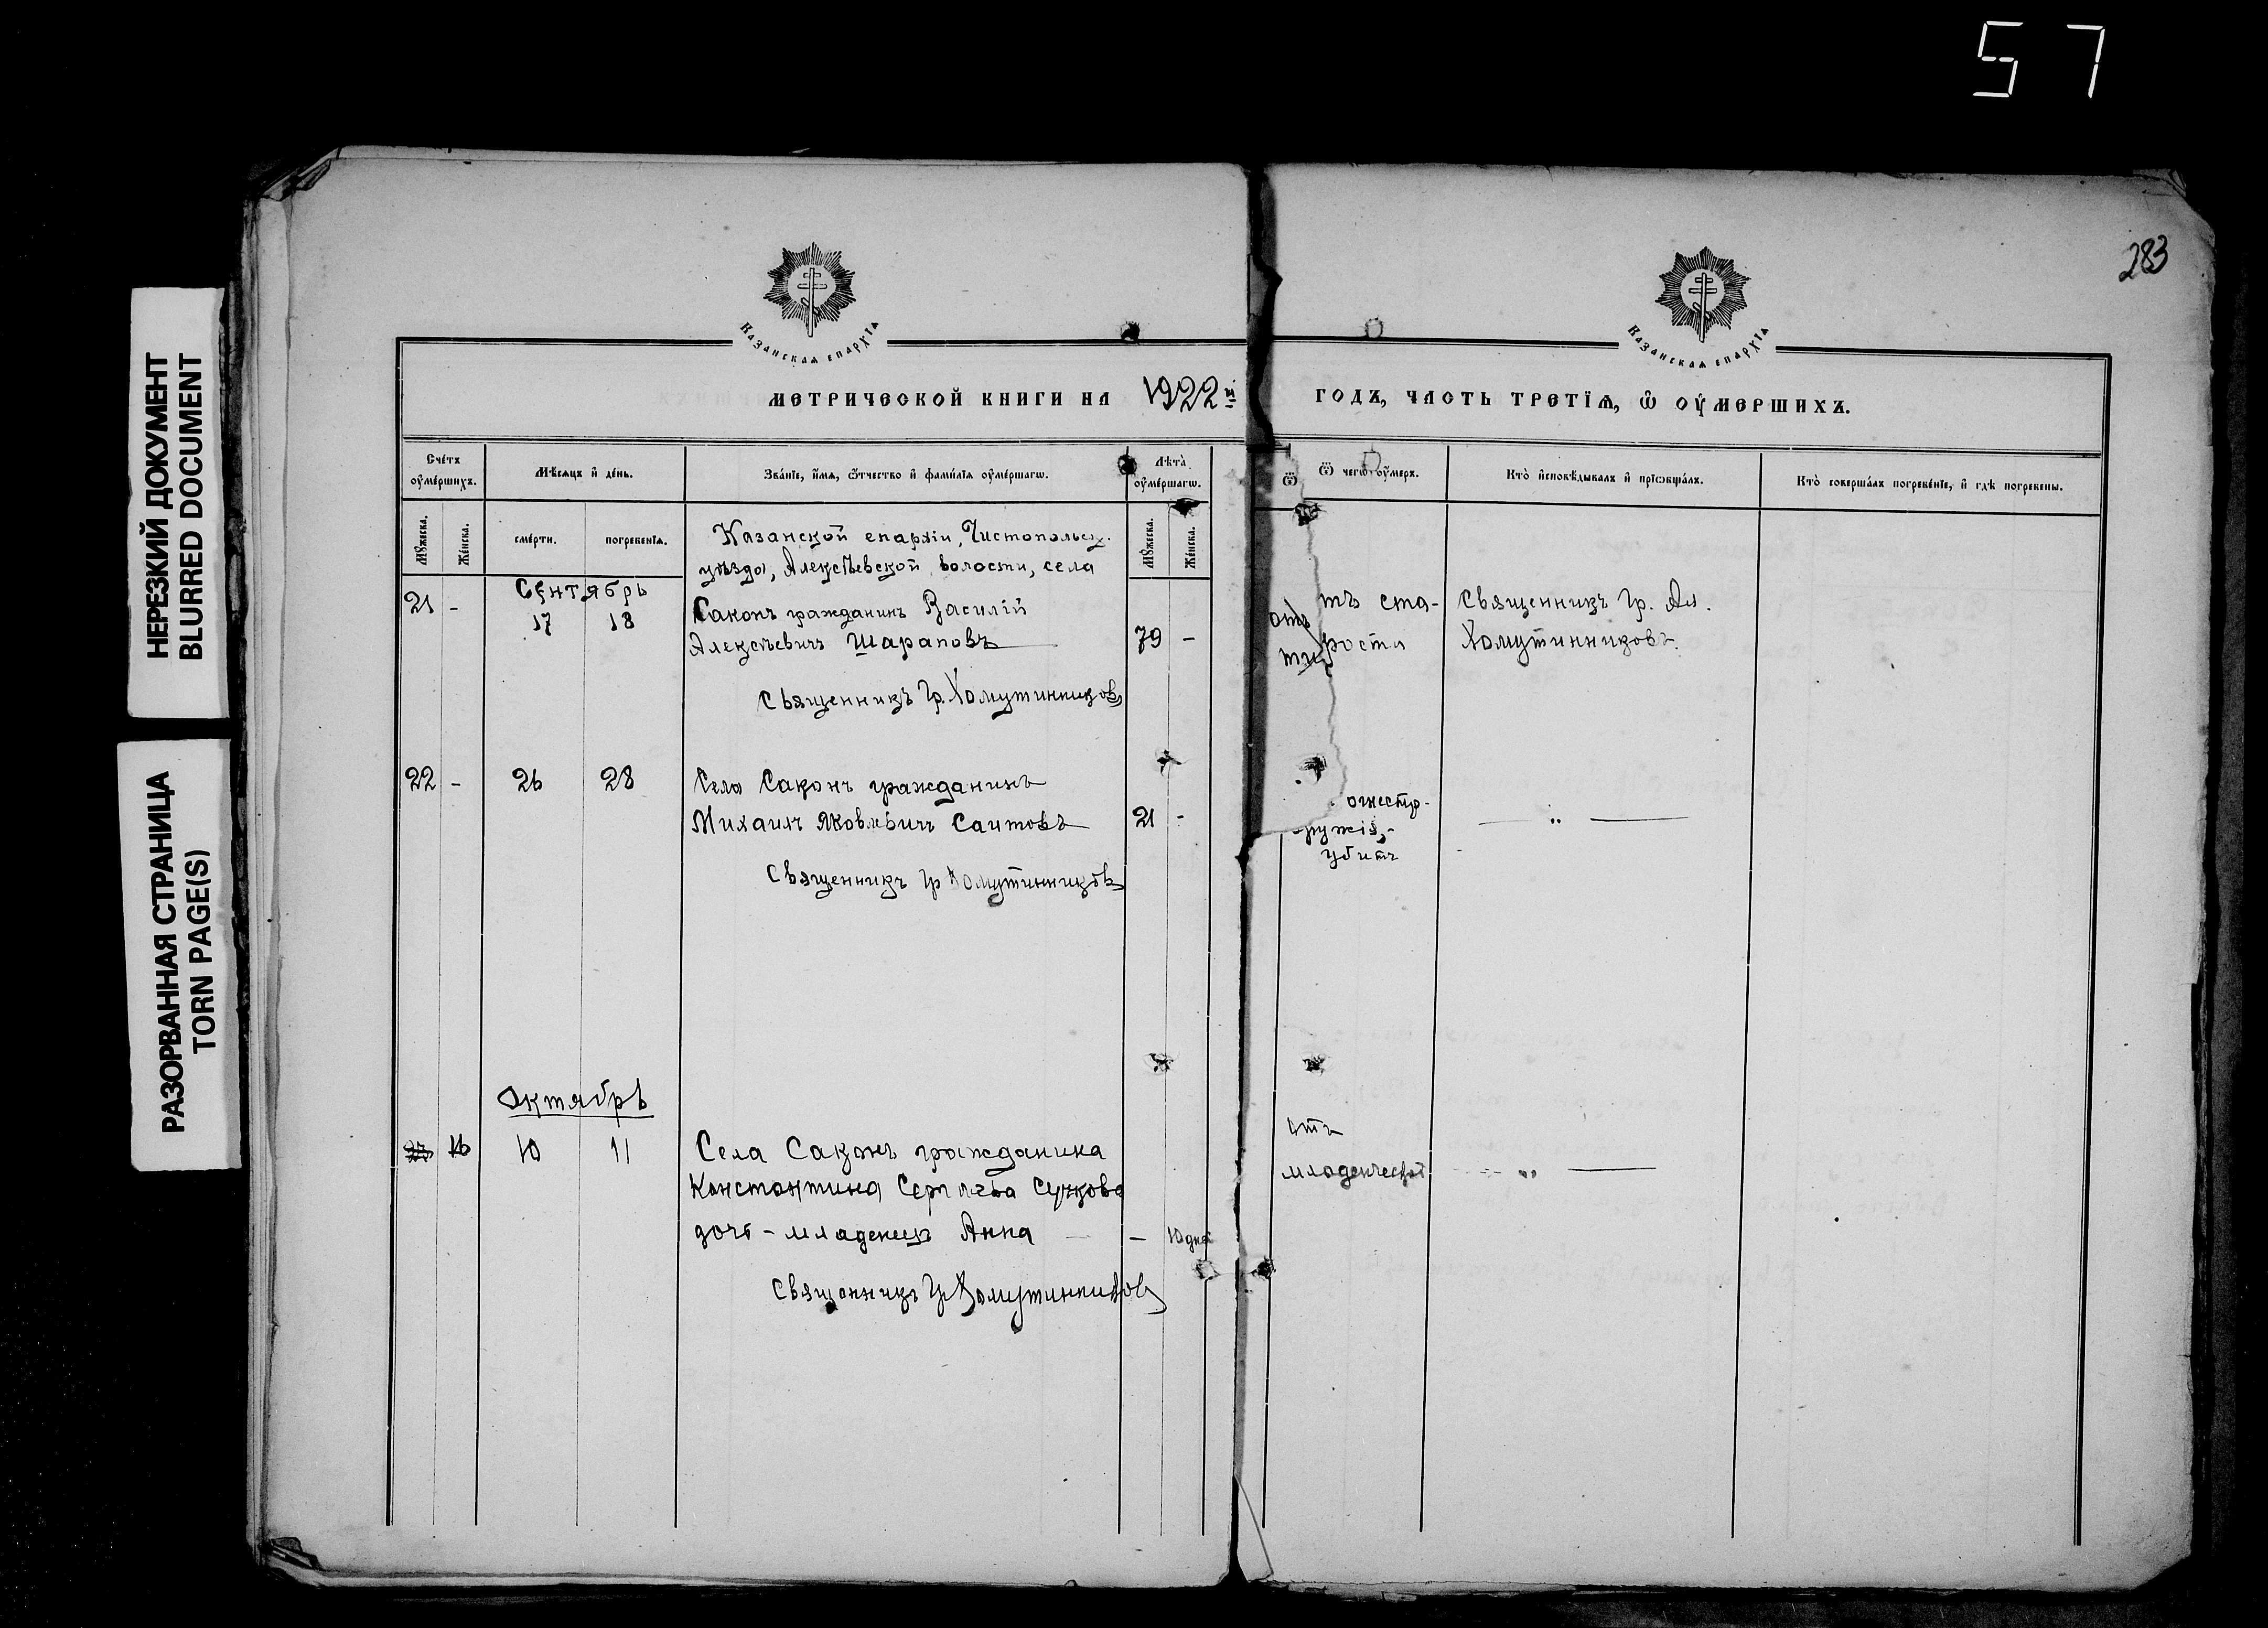 57
НЕРЕЗКИЙ ДОКУМЕНТ
BLURRED DOCUMENT
РАЗОРВАННАЯ СТРАНИЦА
TORN PAGE(S)
283
КАЗАНСКАЯ ЕПАРХІЯ
КАЗАНСКАЯ ЕПАРХІЯ
МЕТРИЧЕСКОЙ КНИГИ НА 1922й ГОДЪ, ЧАСТЬ ТРЕТІѦ, Ѽ ОУМЕРШИХЪ.
Счетъ оумершихъ.
Мѣсяцъ и день.
Званіе, имя, ѿчество и фамилія оумершагѡ.
Лѣта оумершагѡ.
Ѿ чегѡ оумеръ.
Кто исповѣдывалъ и пріобщалъ.
Кто совершалъ погребеніе, и гдѣ погребены.
Мꙋжеска.
Женска.
смерти.
погребенія.
Мꙋжеска.
Женска.
Казанской епархіи, Чистопольск.
уѣзда, Алексѣевской волости, села
Сентябрь
21 - 17 18 Саконъ гражданинъ Василій
Алексѣевичъ Шараповъ 79 -
отъ ста-
рости
Священникъ Гр. Ал.
Хомутинниковъ.
Священникъ Гр. Хомутинниковъ
22 - 26 28 Села Саконъ гражданинъ
Михаилъ Яковлевичъ Саитовъ 21 -
огнестр.
оружія,-
убитъ
— „ —
Священникъ Гр Хомутинниковъ
Октябрь
16 10 11 Села Саконъ гражданина
Константина Сергѣева Сучкова
дочь - младенецъ Анна — 10 дней
отъ
младенческой
— „ —
Священникъ Гр Хомутинниковъ